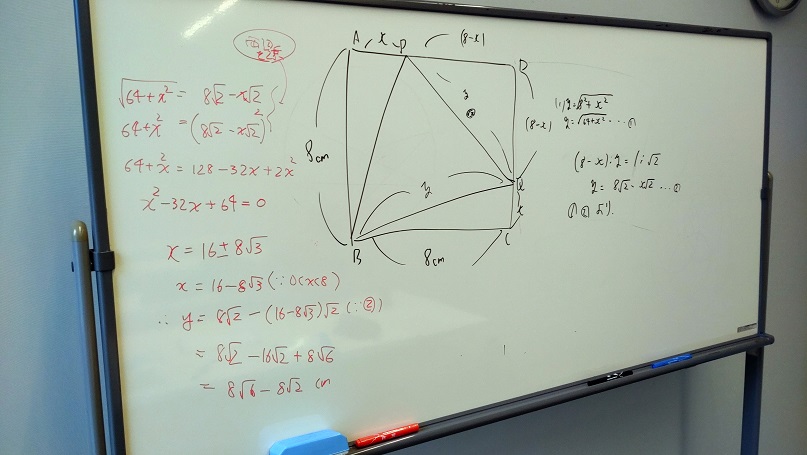 両辺
2乗
√64+x² = 8√2 - x√2
64+x² = (8√2 - x√2)²
64+x² = 128-32x+2x²
x²-32x+64=0
x = 16±8√3
x = 16-8√3 (∵0<x<8)
∴ y = 8√2 - (16-8√3)√2 (∵②)
= 8√2 - 16√2 + 8√6
= 8√6 - 8√2 cm
A x P (8-x) D
8cm
y
(8-x)
Q
x
B 8cm C
y=√8²+x²
y=√64+x² ... ①
(8-x):y = 1:√2
y = 8√2 - x√2 ... ②
①②より.